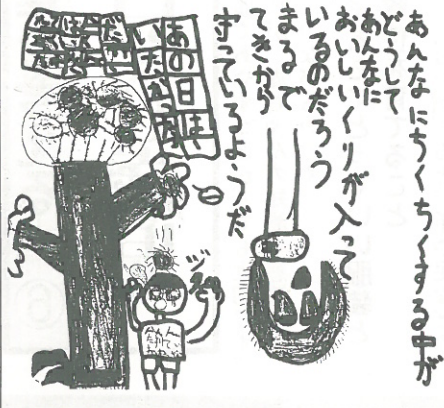 あんなにちくちくする中が
どうして
あんなに
おいしいくりが入って
いるのだろう
まるで
てきから
守っているようだ
あの日は
いたかった